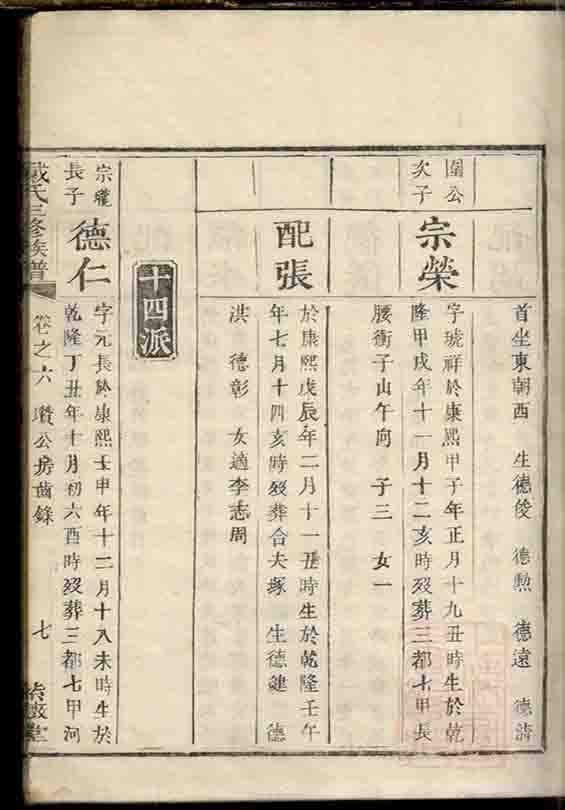 首坐東朝西 生德俊 德勲 德遠 德清
圍公
次子
宗榮
字琥祥於康熙甲子年正月十九丑時生於乾
隆甲戌年十一月十二亥時歿葬三都七甲長
腰衝子山午向 子三 女一
配張
於康熙戊辰年二月十一丑時生於乾隆壬午
年七月十四亥時歿葬合夫塚 生德建 德
洪 德彰 女適李志周
十四派
宗瓏
長子
德仁
字元長於康熙壬申年十二月十八未時生於
乾隆丁丑年十月初六酉時歿葬三都七甲河
氏三修族譜
卷之六 瓚公房齒錄
七
堂